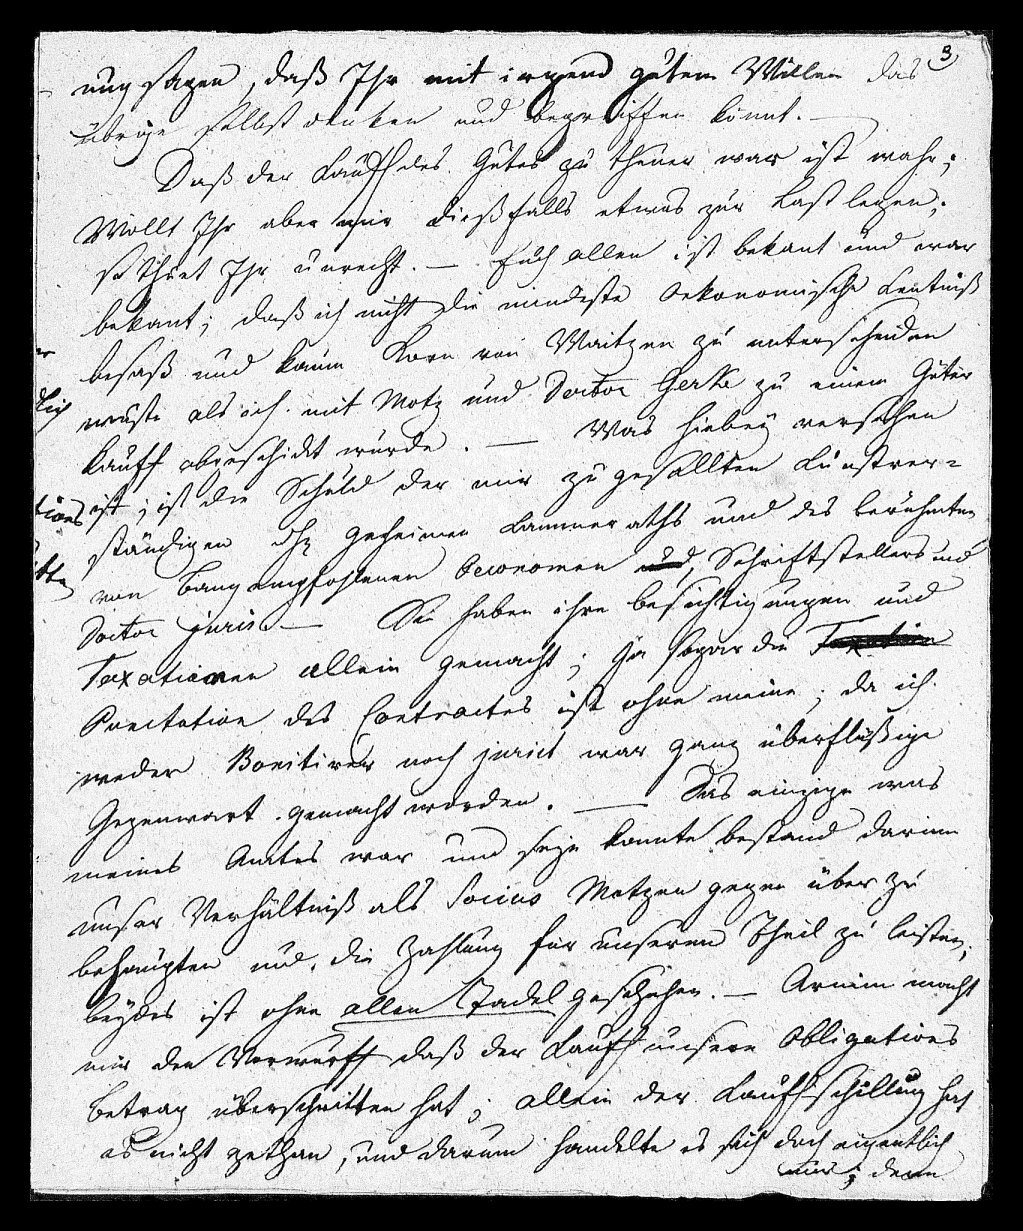 3
nug sagen, daß Ihr mit irgend gutem Willen das
übrige selbst denken und begreiffen könnt. —
Daß der Kauff des Gutes zu theuer war ist wahr;
Wollt Ihr aber mir dießfalls etwas zur Last legen,
so thuet Ihr unrecht. — Euch allen ist bekant und war
bekant; daß ich nicht die mindeste oekonomische Kentniß
besaß und kaum Korn von Waitzen zu unterscheiden
wuste als ich mit Motz und Doctor Gerke zu einem Güter
Kauff abgeschickt wurde. — Was hiebey versehen
ist, ist die Schuld der mir zugesellten Kunstver-
ständigen des geheimen Cammerraths und des berühmten
von Bang empfohlenen Oeconomen und, Schriftstellers und
Doctor juris — Sie haben ihre besichtigungen und
Taxationen allein gemacht; ja sogar die
Punctation des Contractes ist ohne meine, da ich
weder Bonitirer noch jurist war ganz überflüßige
Gegenwart gemacht worden. — Das einzige was
meines Amtes war und seyn konnte bestand darinn
unser Verhältniß als Socius Motzen gegen über zu
behaupten und die Zahlung für unseren Theil zu leisten,
beydes ist ohne allen Tadel geschehen. — Arnim macht
mir den Vorwurff daß der Kauff unsere Obligations
betrag überschritten hat; allein der Kauffschilling hat
es nicht gethan, und darum handelte es sich doch eigentlich
nur; denn